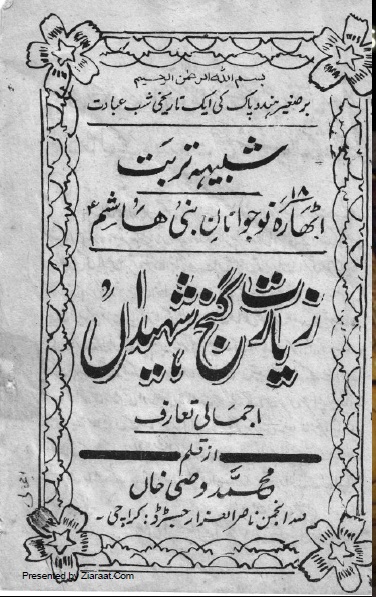 بسم اللہ الرحمن الرحیم
برصغیر ہند و پاک کی ایک تاریخی شب عبادت
شبیہہ تربت
۱۸
اٹھارہ نوجوانان بنی ھاشمؑ
زیارت گنج شہیداں
اجمالی تعارف
از قلم
محمد وصی خاں
صدر انجمن ناصر العزا رجسٹرڈ: کراچی ۔
Presented by Ziaraat.Com